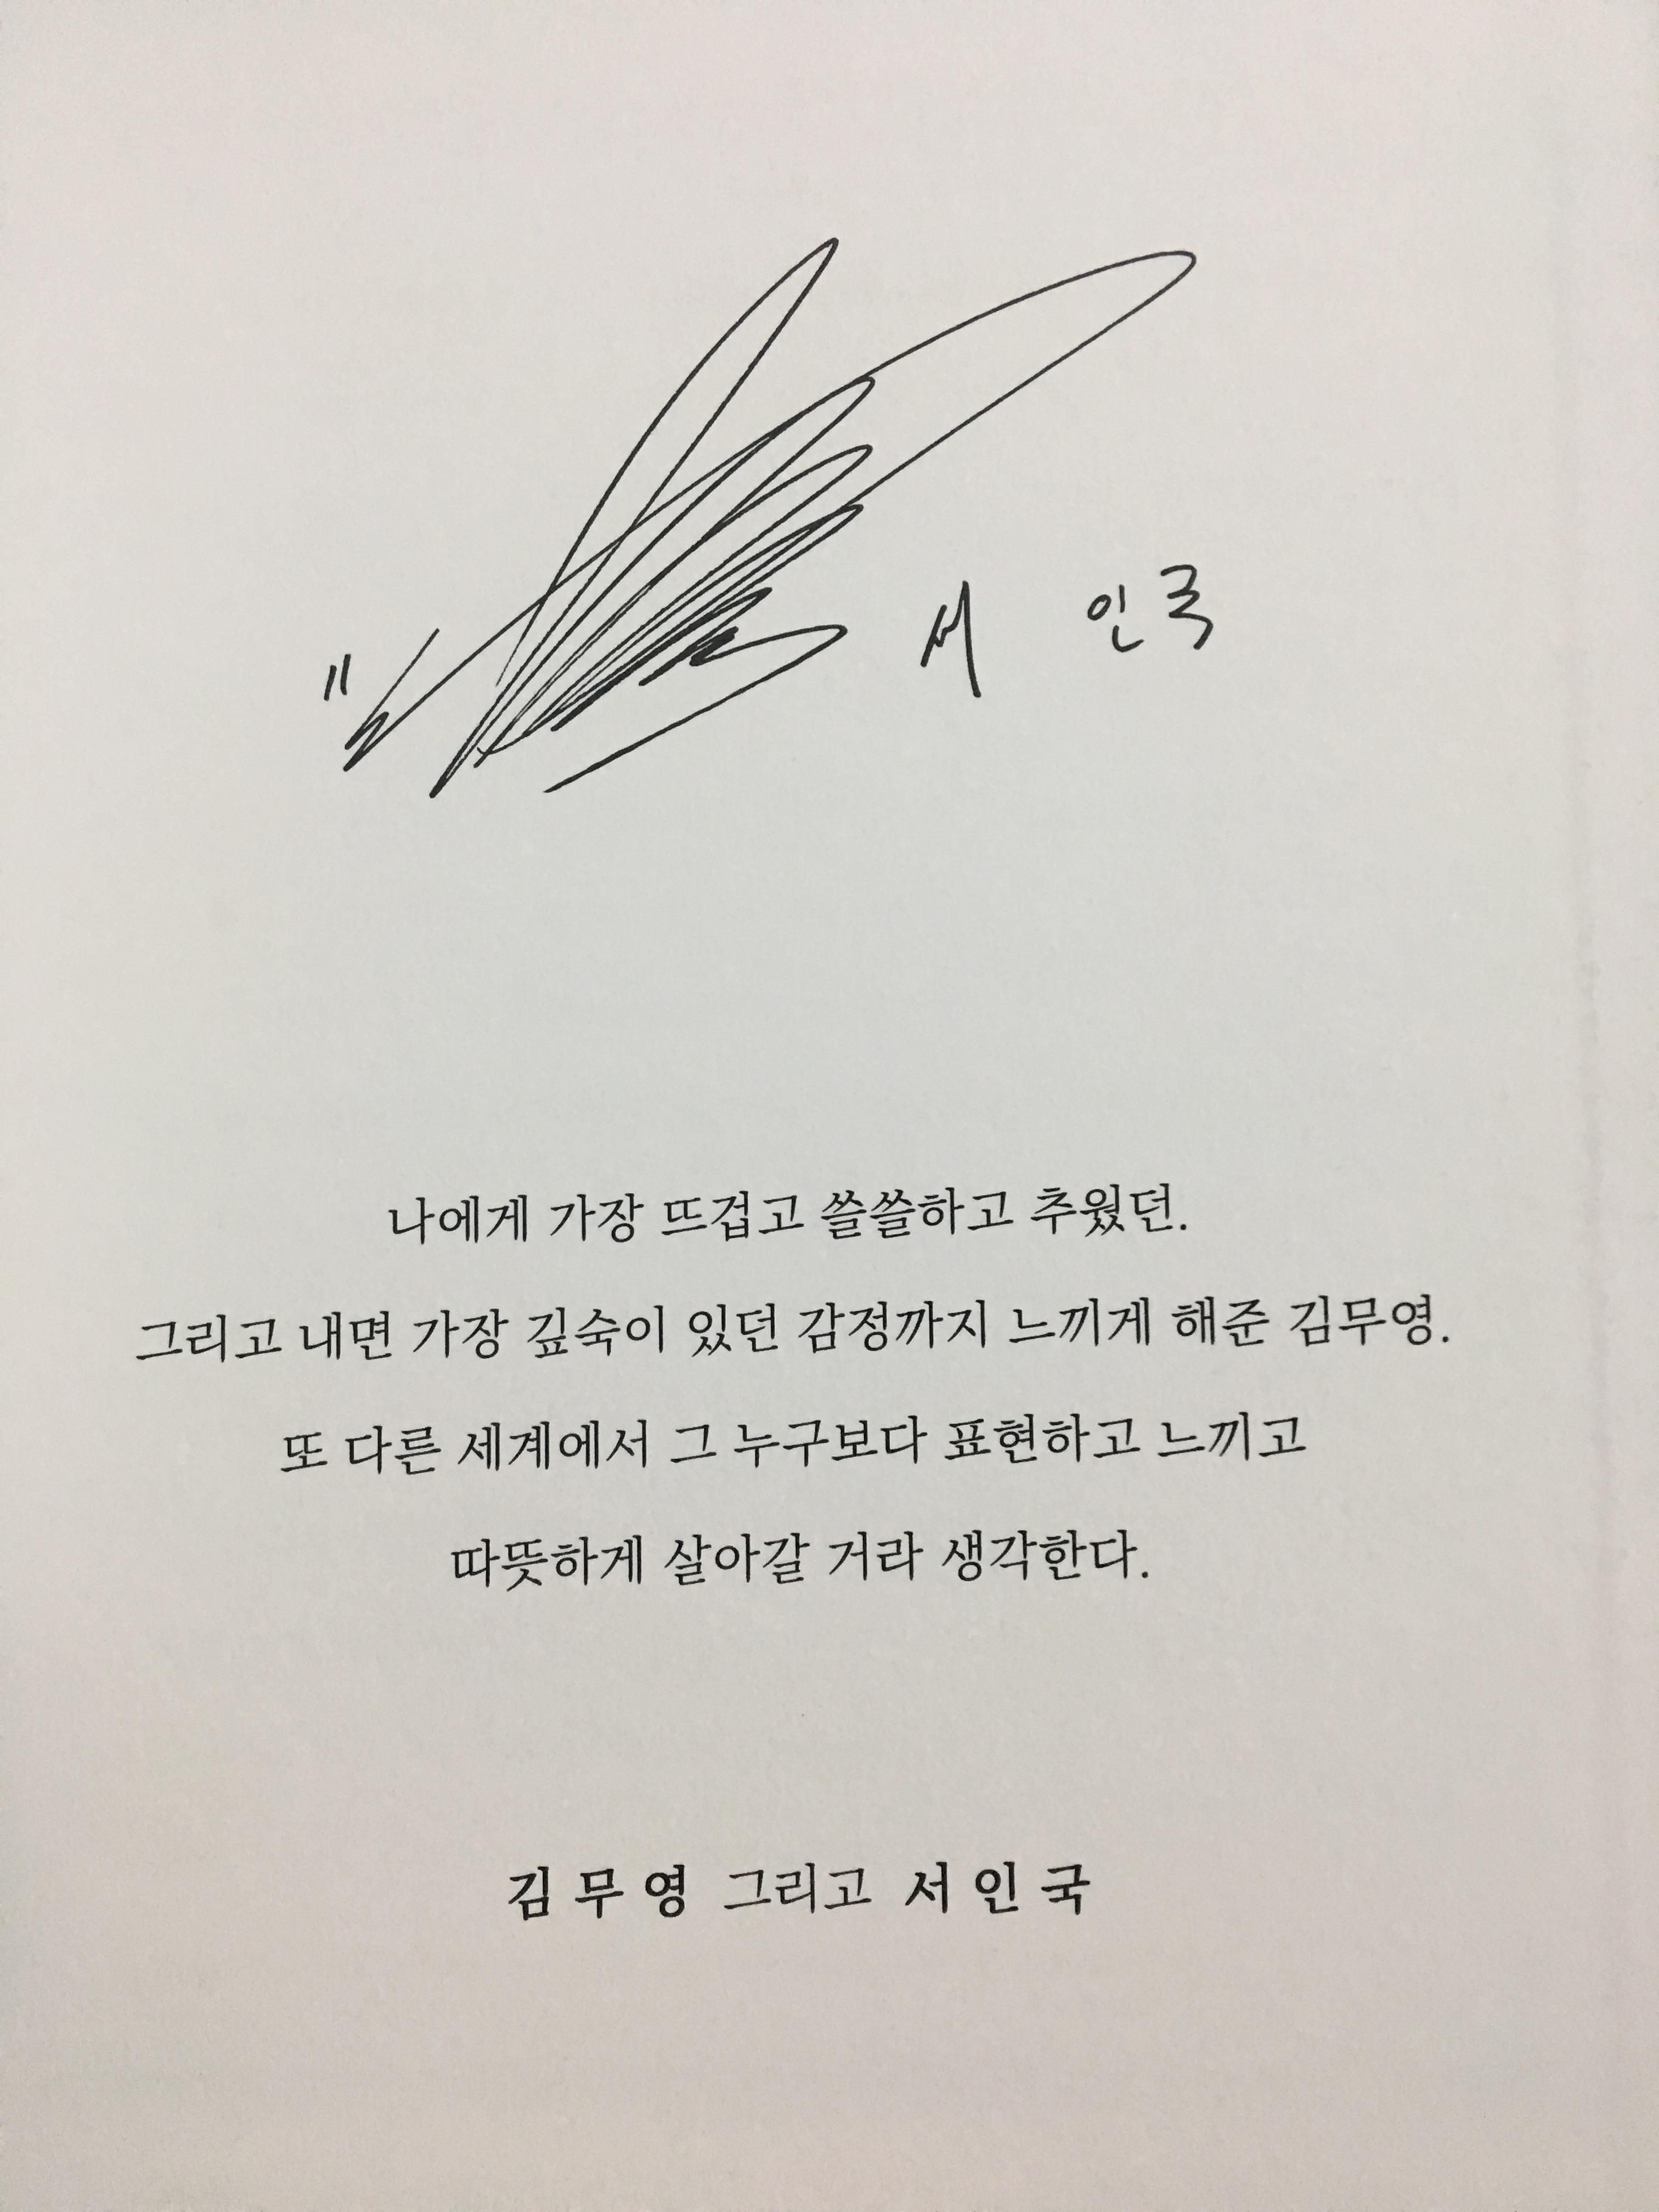 서 인국
나에게 가장 뜨겁고 쓸쓸하고 추웠던.
그리고 내면 가장 깊숙이 있던 감정까지 느끼게 해준 김무영.
또 다른 세계에서 그 누구보다 표현하고 느끼고
따뜻하게 살아갈 거라 생각한다.
김 무 영 그리고 서 인 국